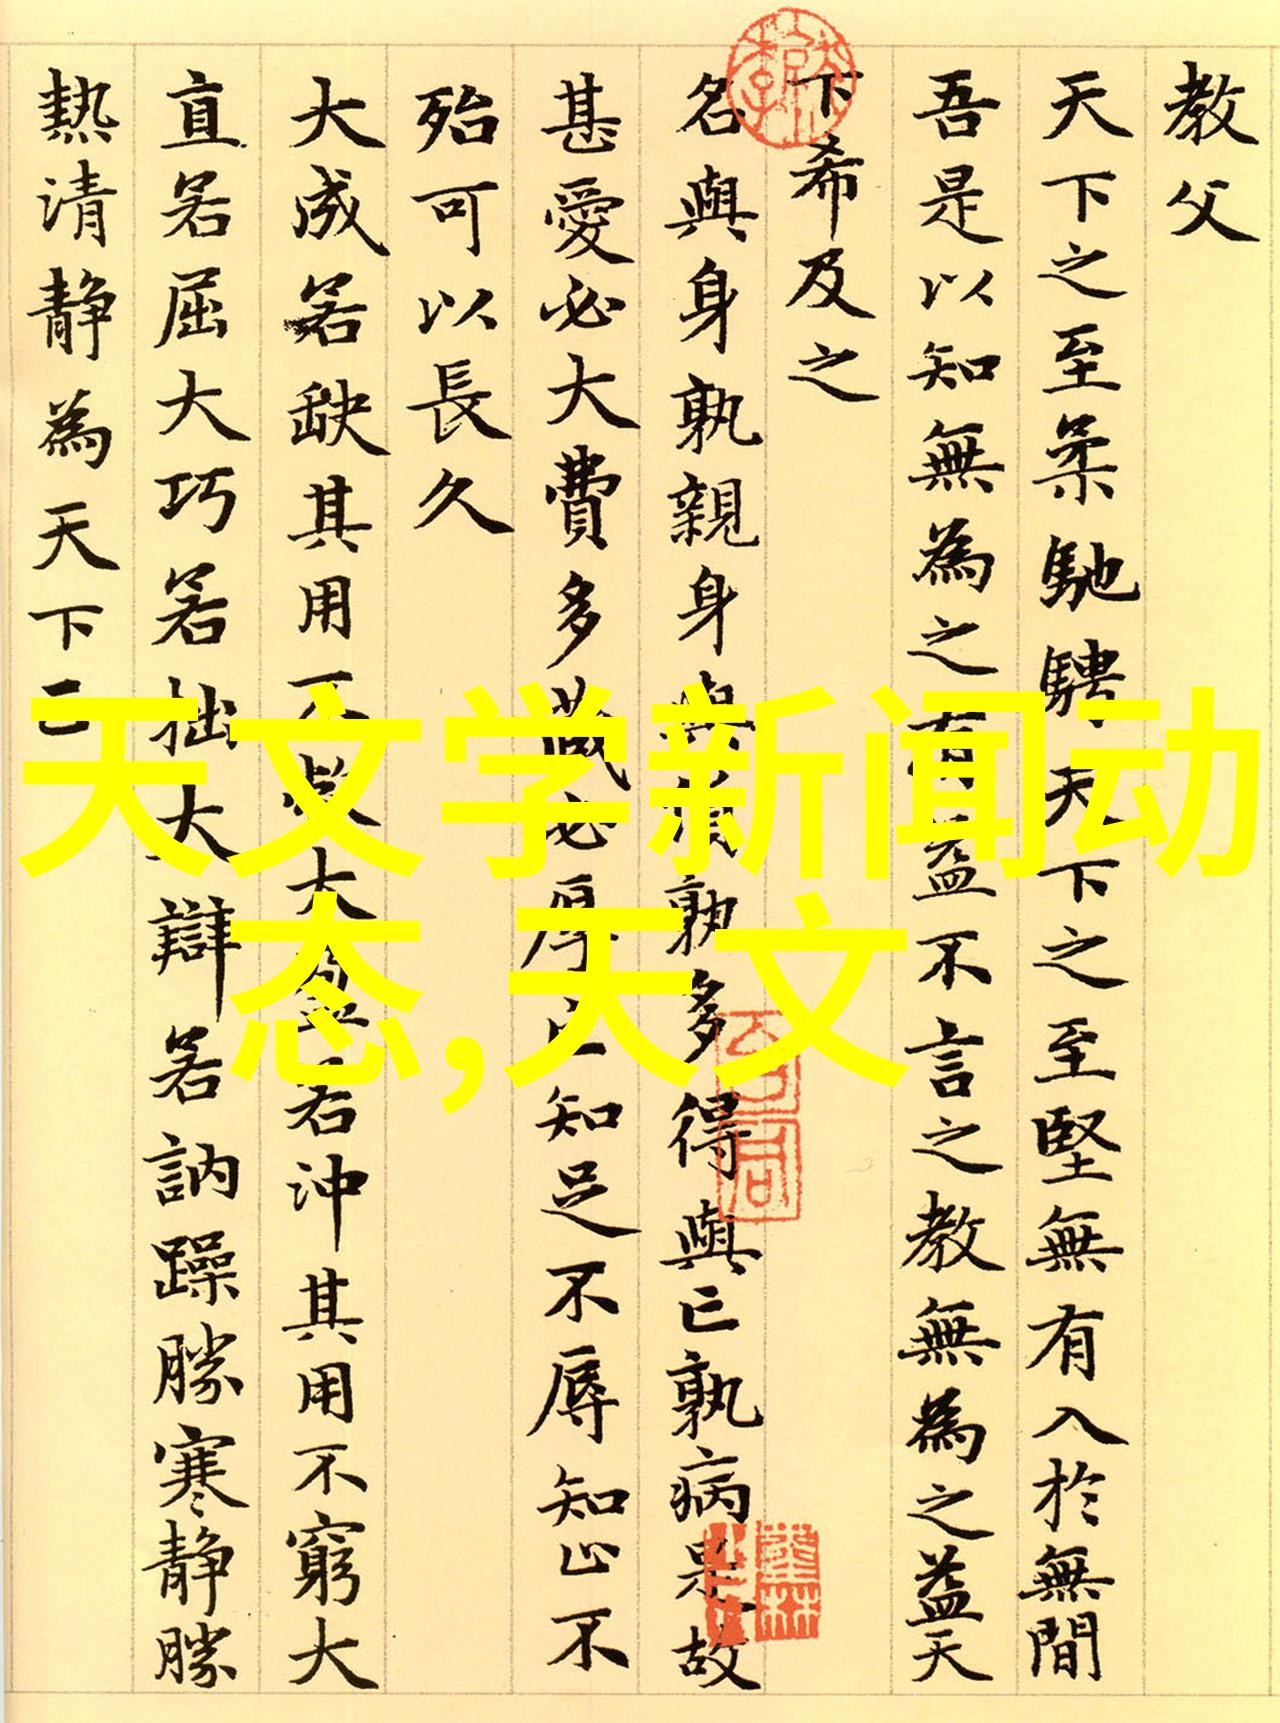 教父
天下之至柔馳騁天下之至堅無有入於無間
吾是以知無為之有益不言之教無為之益天
下希及之
名與身孰親身與貨孰多得與亡孰病是故
甚愛必大費多藏必厚亡知足不辱知止不
殆可以長久
大成若缺其用不敝大盈若沖其用不窮大
直若屈大巧若拙大辯若訥躁勝寒静勝
熱清静為天下
天文学新闻动
态,天文